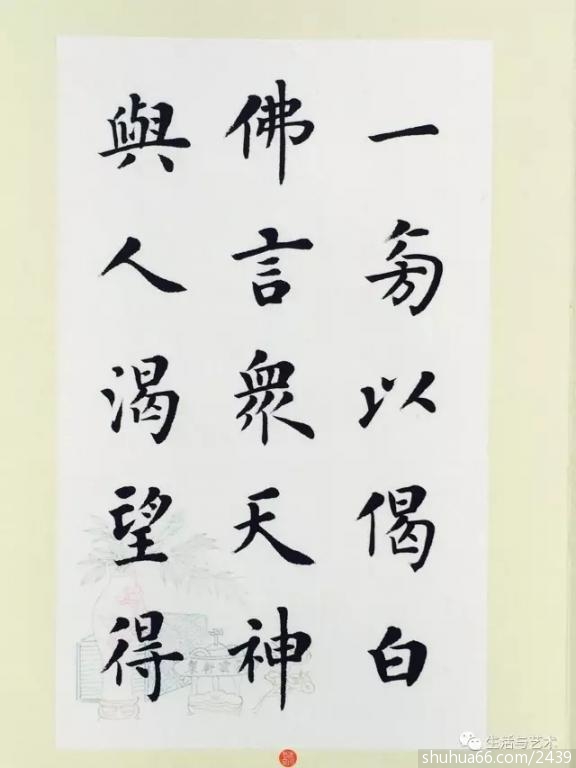 一旁以偈白
佛言衆天神
與人渴望得
生活与艺术
shuhua66.com/2439